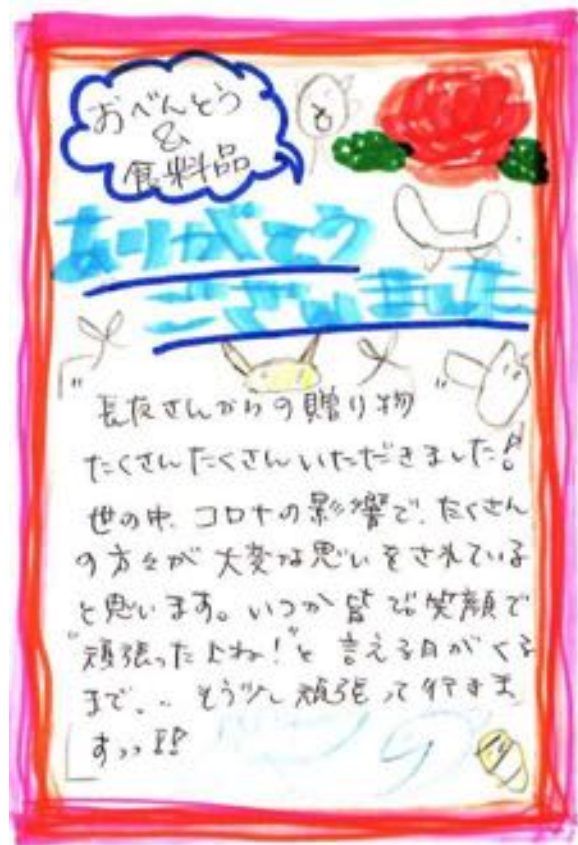 おべんとう
&
食料品
ありがとう
ございました
"長友さんからの贈り物"
たくさんたくさんいただきました!
世の中、コロナの影響で、たくさん
の方々が大変な思いをされている
と思います。いつか皆で笑顔で
"頑張ったよね!"と言える日がくる
まで... そう少し頑張って行きま
すっっ!!